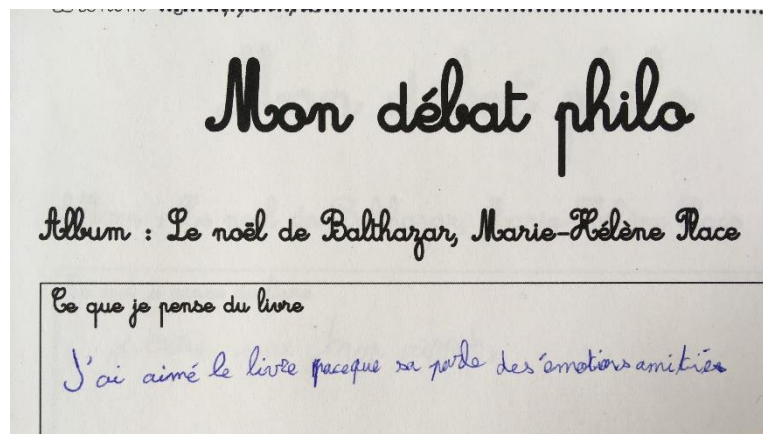 Mon débat philo
Album : Le noël de Balthazar, Marie-Hélène Place
Ce que je pense du livre
J'ai aimé le livre paceque sa parle des émotions amitiés